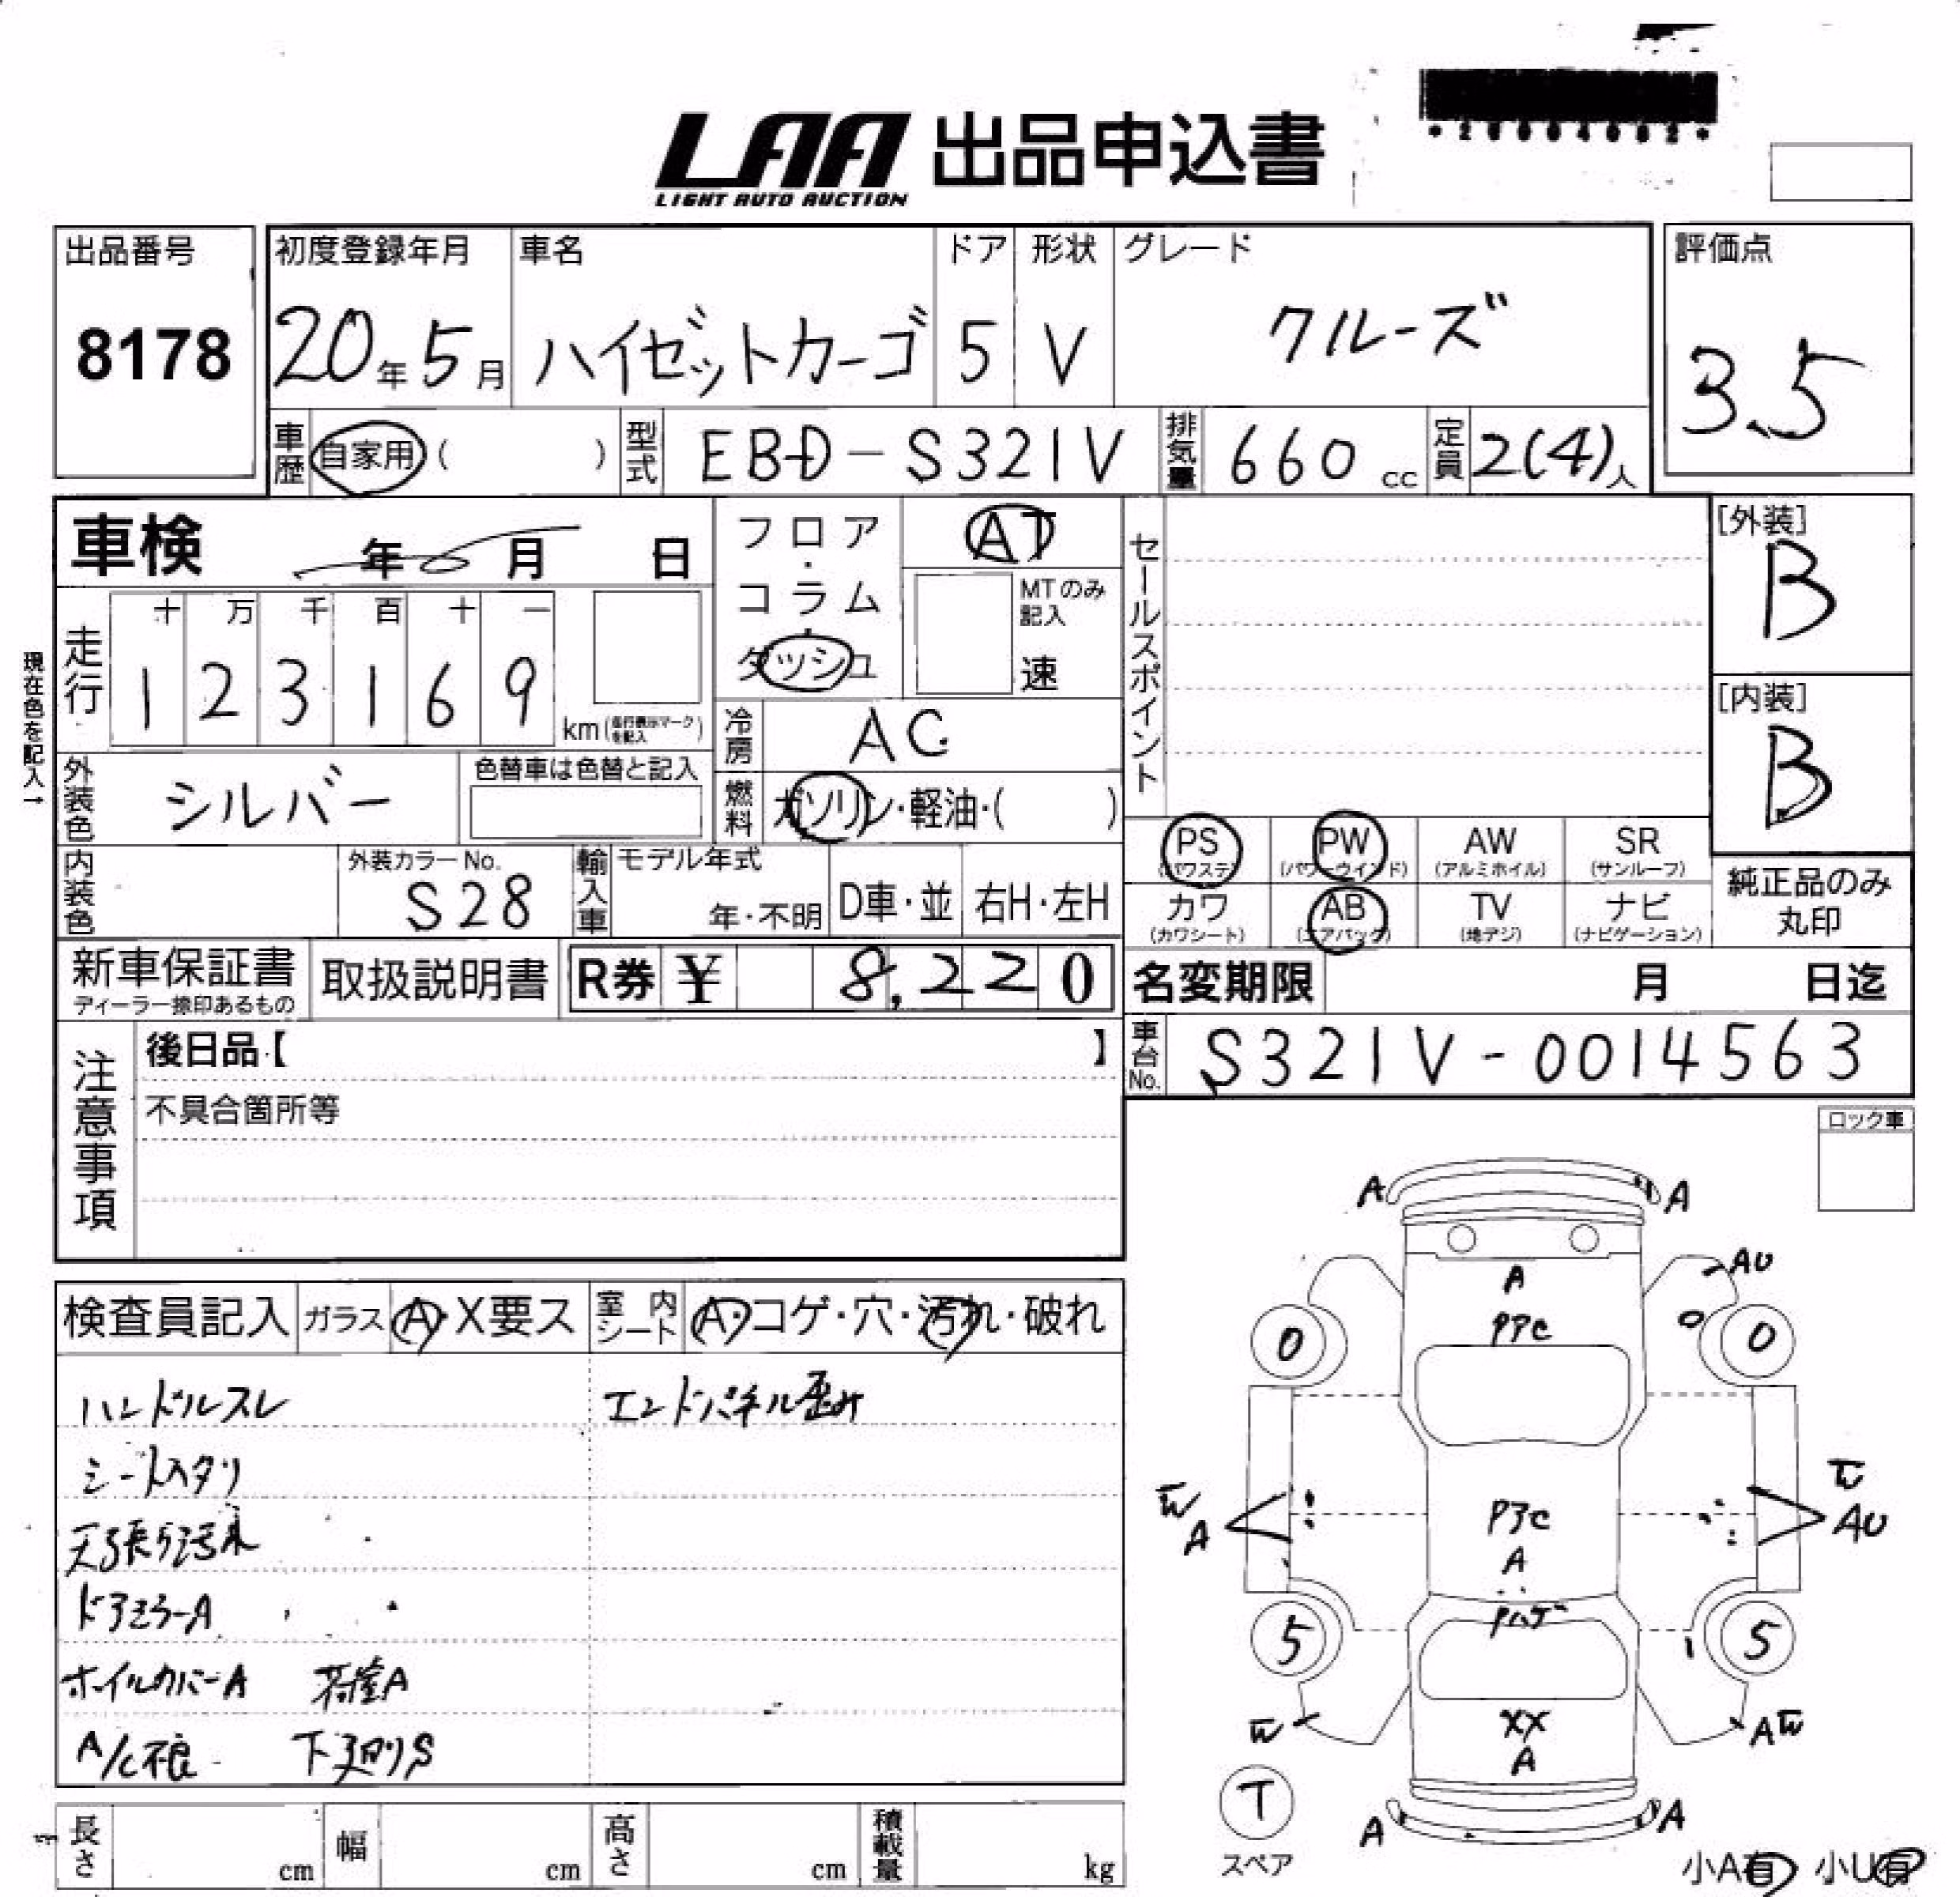 LAA 出品申込書
LIGHT AUTO AUCTION
出品番号
8178
初度登録年月
20年5月
車名
ハイゼットカーゴ
ドア
5
形状
V
グレード
クルーズ
評価点
3.5
車歴 自家用( )
型式 EBD-S321V
排気量 660 cc
定員 2(4)人
車検 年 月 日
フロア・コラム・ダッシュ
AT
MTのみ記入
速
セールスポイント
[外装]
B
[内装]
B
現在色を記入→
走行
十 万 千 百 十 一
1 2 3 1 6 9
km(走行表示マークを記入)
冷房 AC
外装色 シルバー
色替車は色替と記入
燃料 ガソリン・軽油・( )
PS (パワステ)
PW (パワーウインド)
AW (アルミホイル)
SR (サンルーフ)
カワ (カワシート)
AB (エアバック)
TV (地デジ)
ナビ (ナビゲーション)
純正品のみ丸印
内装色
外装カラーNo.
S28
輸入車
モデル年式
年・不明
D車・並
右H・左H
新車保証書
ディーラー捺印あるもの
取扱説明書
R券 ¥ 8,220
名変期限 月 日迄
車台No. S321V-0014563
注意事項
後日品【 】
不具合箇所等
ロック車
検査員記入
ガラス A・X要ス
室内シート A・コゲ・穴・汚れ・破れ
ハンドルスレ
エンドパネル歪み
シートヘタリ
天張り汚れ
ドアミラーA
ホイルカバーA 荷室A
A/C不良 下廻りS
A A
A
PPC
AU
0 0
W
A
W
AU
PアC
A
Pハゲ
5 5
W
XX
A
AW
T
スペア
A A
小A有 小U有
長さ cm
幅 cm
高さ cm
積載量 kg